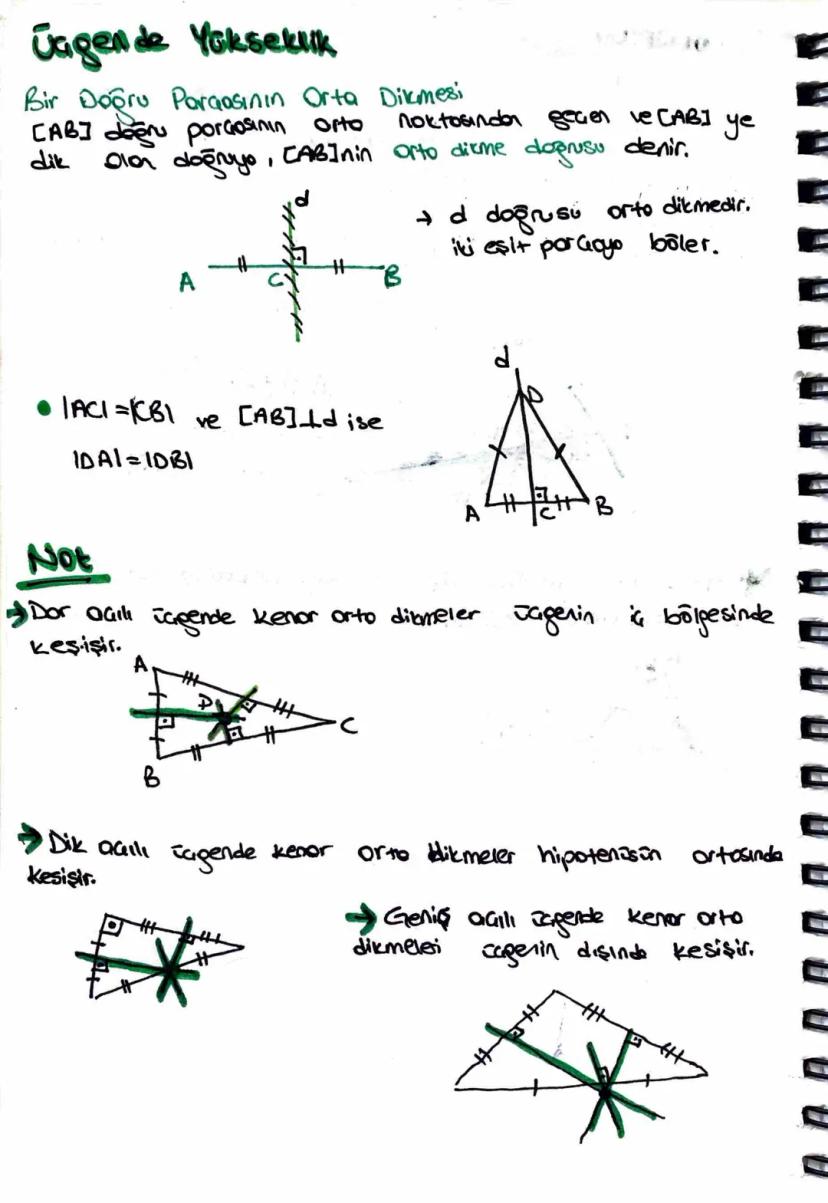 Üçgende Yükseklik
Bir Doğru Parçasının Orta Dikmesi
[AB] doğru parçasının orta noktasından geçen ve [AB] ye
dik olan doğruya, [AB]nin orta dikme doğrusu denir.
d
A C B
→ d doğrusu orta dikmedir.
iki eşit parçaya böler.
• |AC|=|CB| ve [AB]⊥d ise
|DA|=|DB|
d
D
A C B
Not
→ Dar açılı üçgende kenar orta dikmeler üçgenin iç bölgesinde
kesişir.
A
D
C
B
→ Dik açılı üçgende kenar orta dikmeler hipotenüsün ortasında
kesişir.
→ Geniş açılı üçgende kenar orta
dikmeleri üçgenin dışında kesişir.